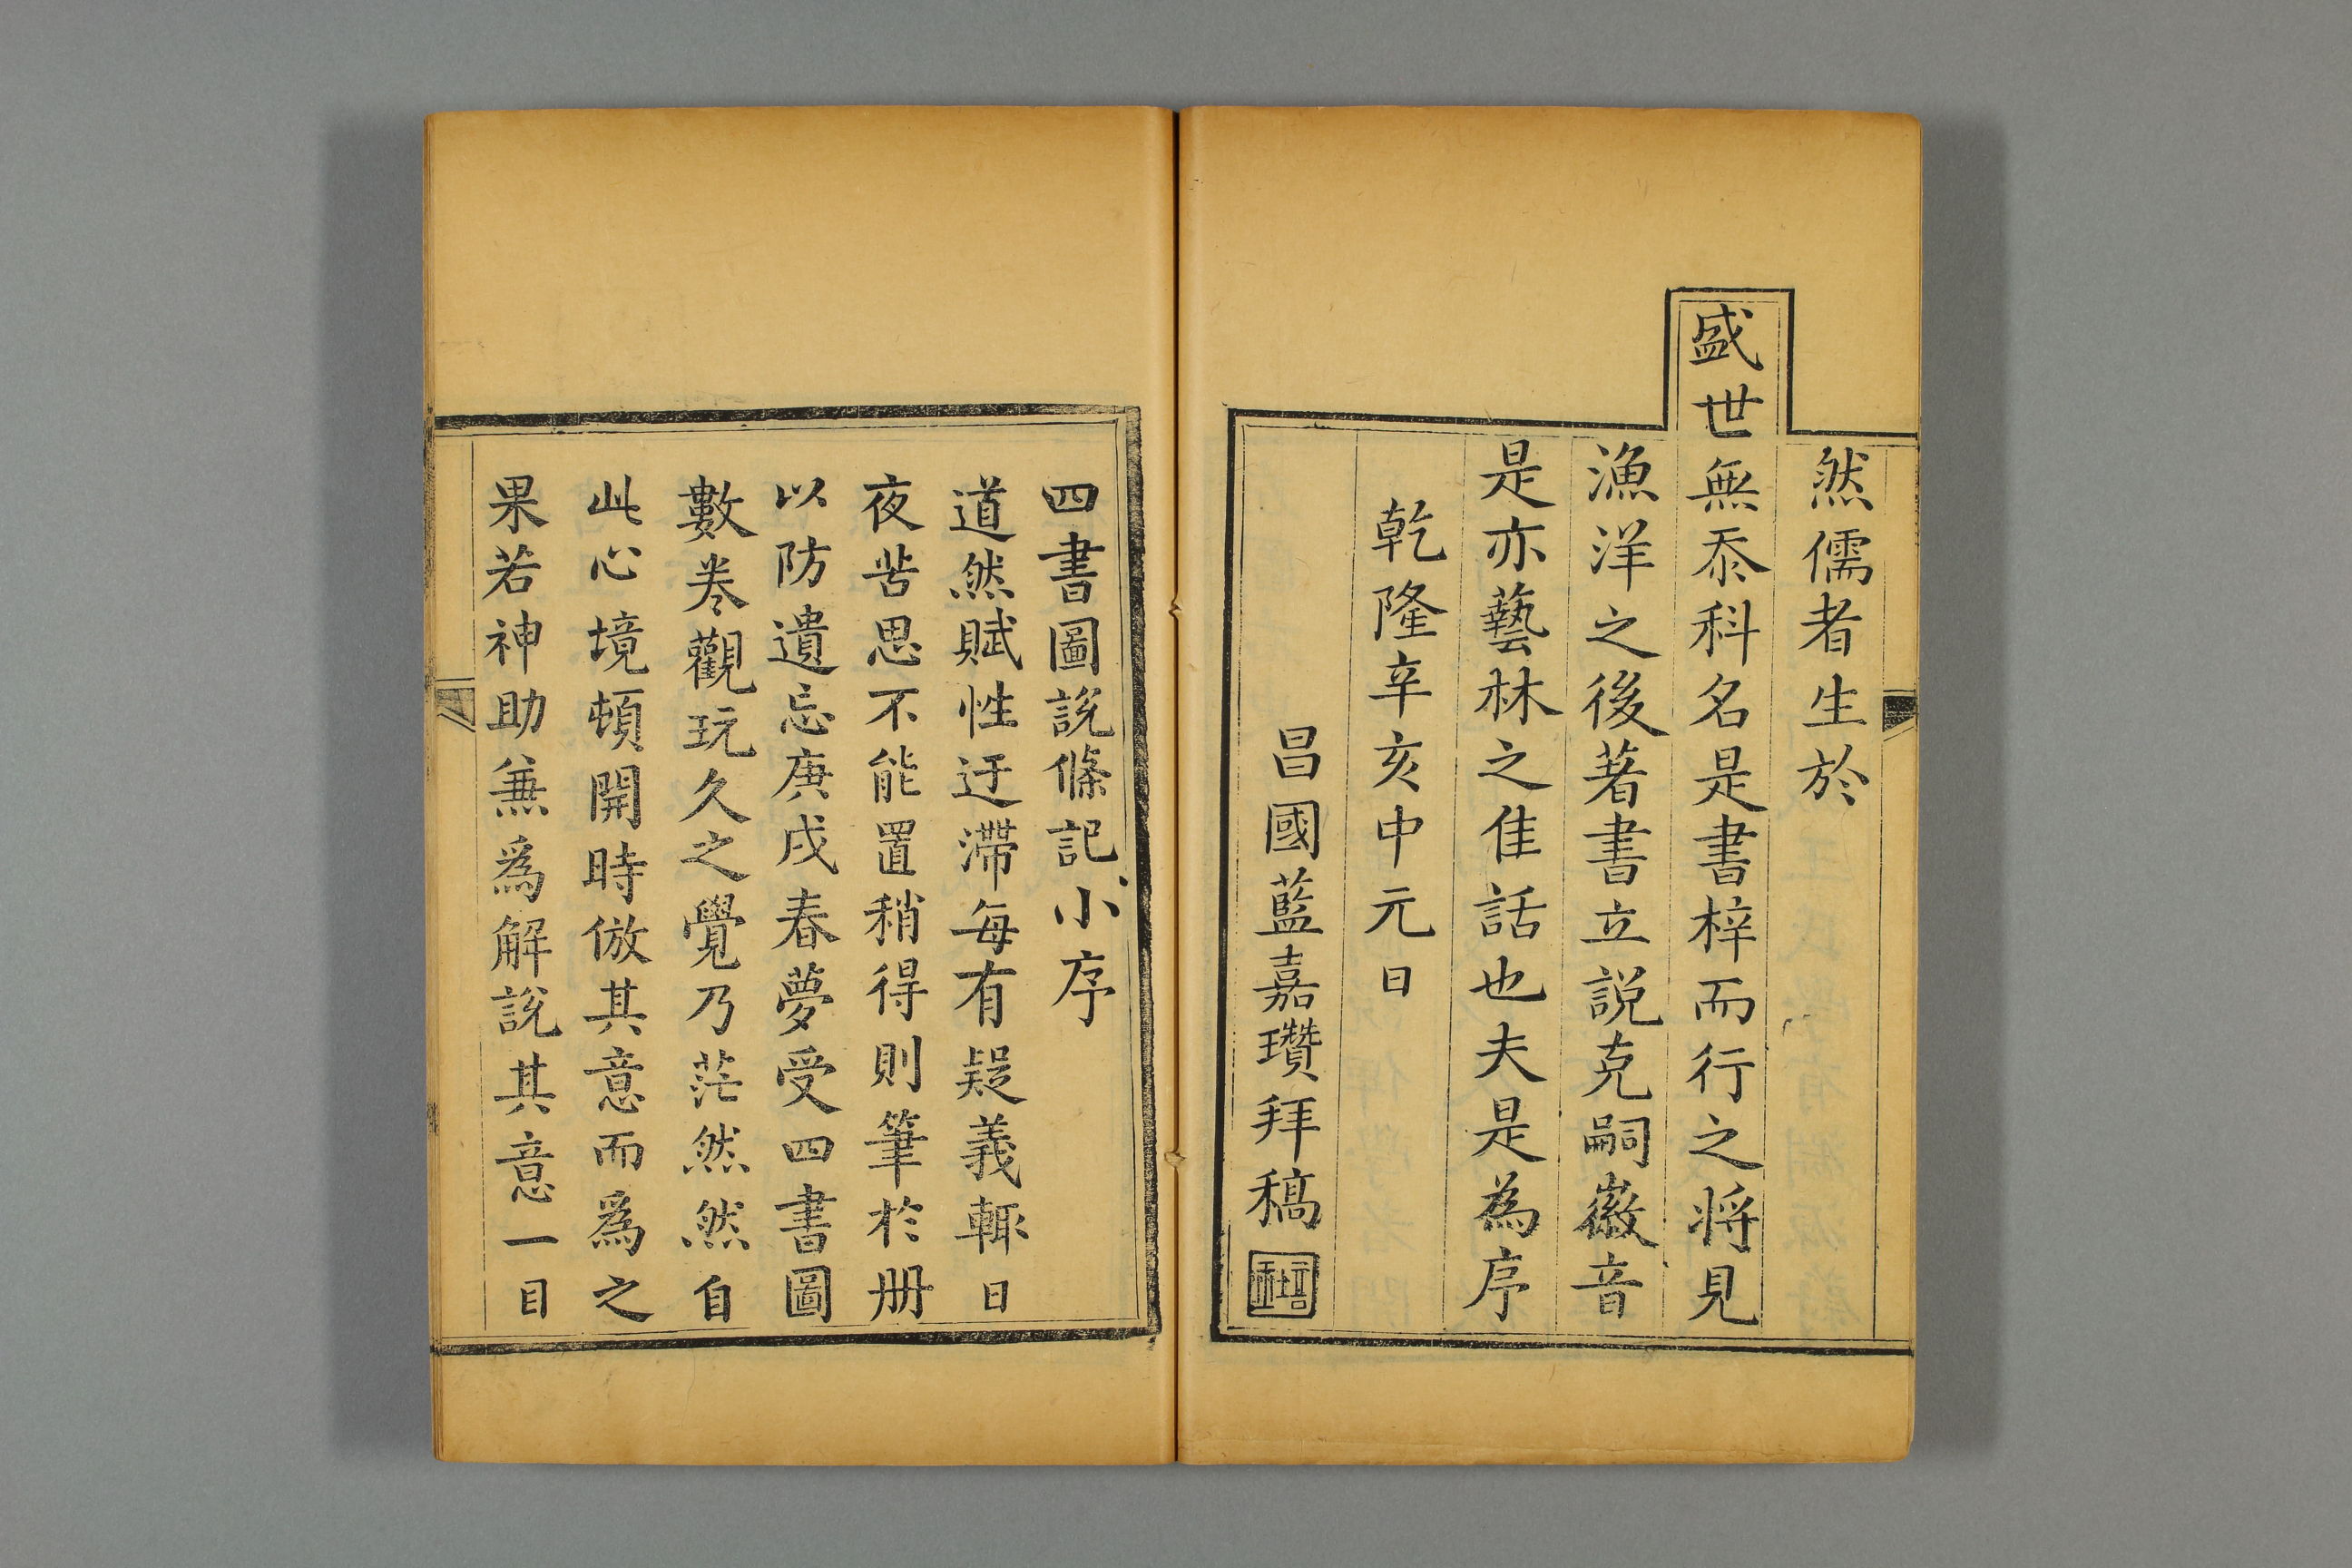 然儒者生於
盛世無忝科名是書梓而行之將見
漁洋之後著書立説克嗣徽音
是亦藝林之佳話也夫是為序
乾隆辛亥中元日
昌國藍嘉瓚拜稿
四書圖說條記小序
道然賦性迂滯每有疑義輒日
夜苦思不能置稍得則筆於册
以防遺忘庚戌春夢受四書圖
數卷觀玩久之覺乃茫然然自
此心境頓開時倣其意而為之
果若神助兼爲解說其意一目